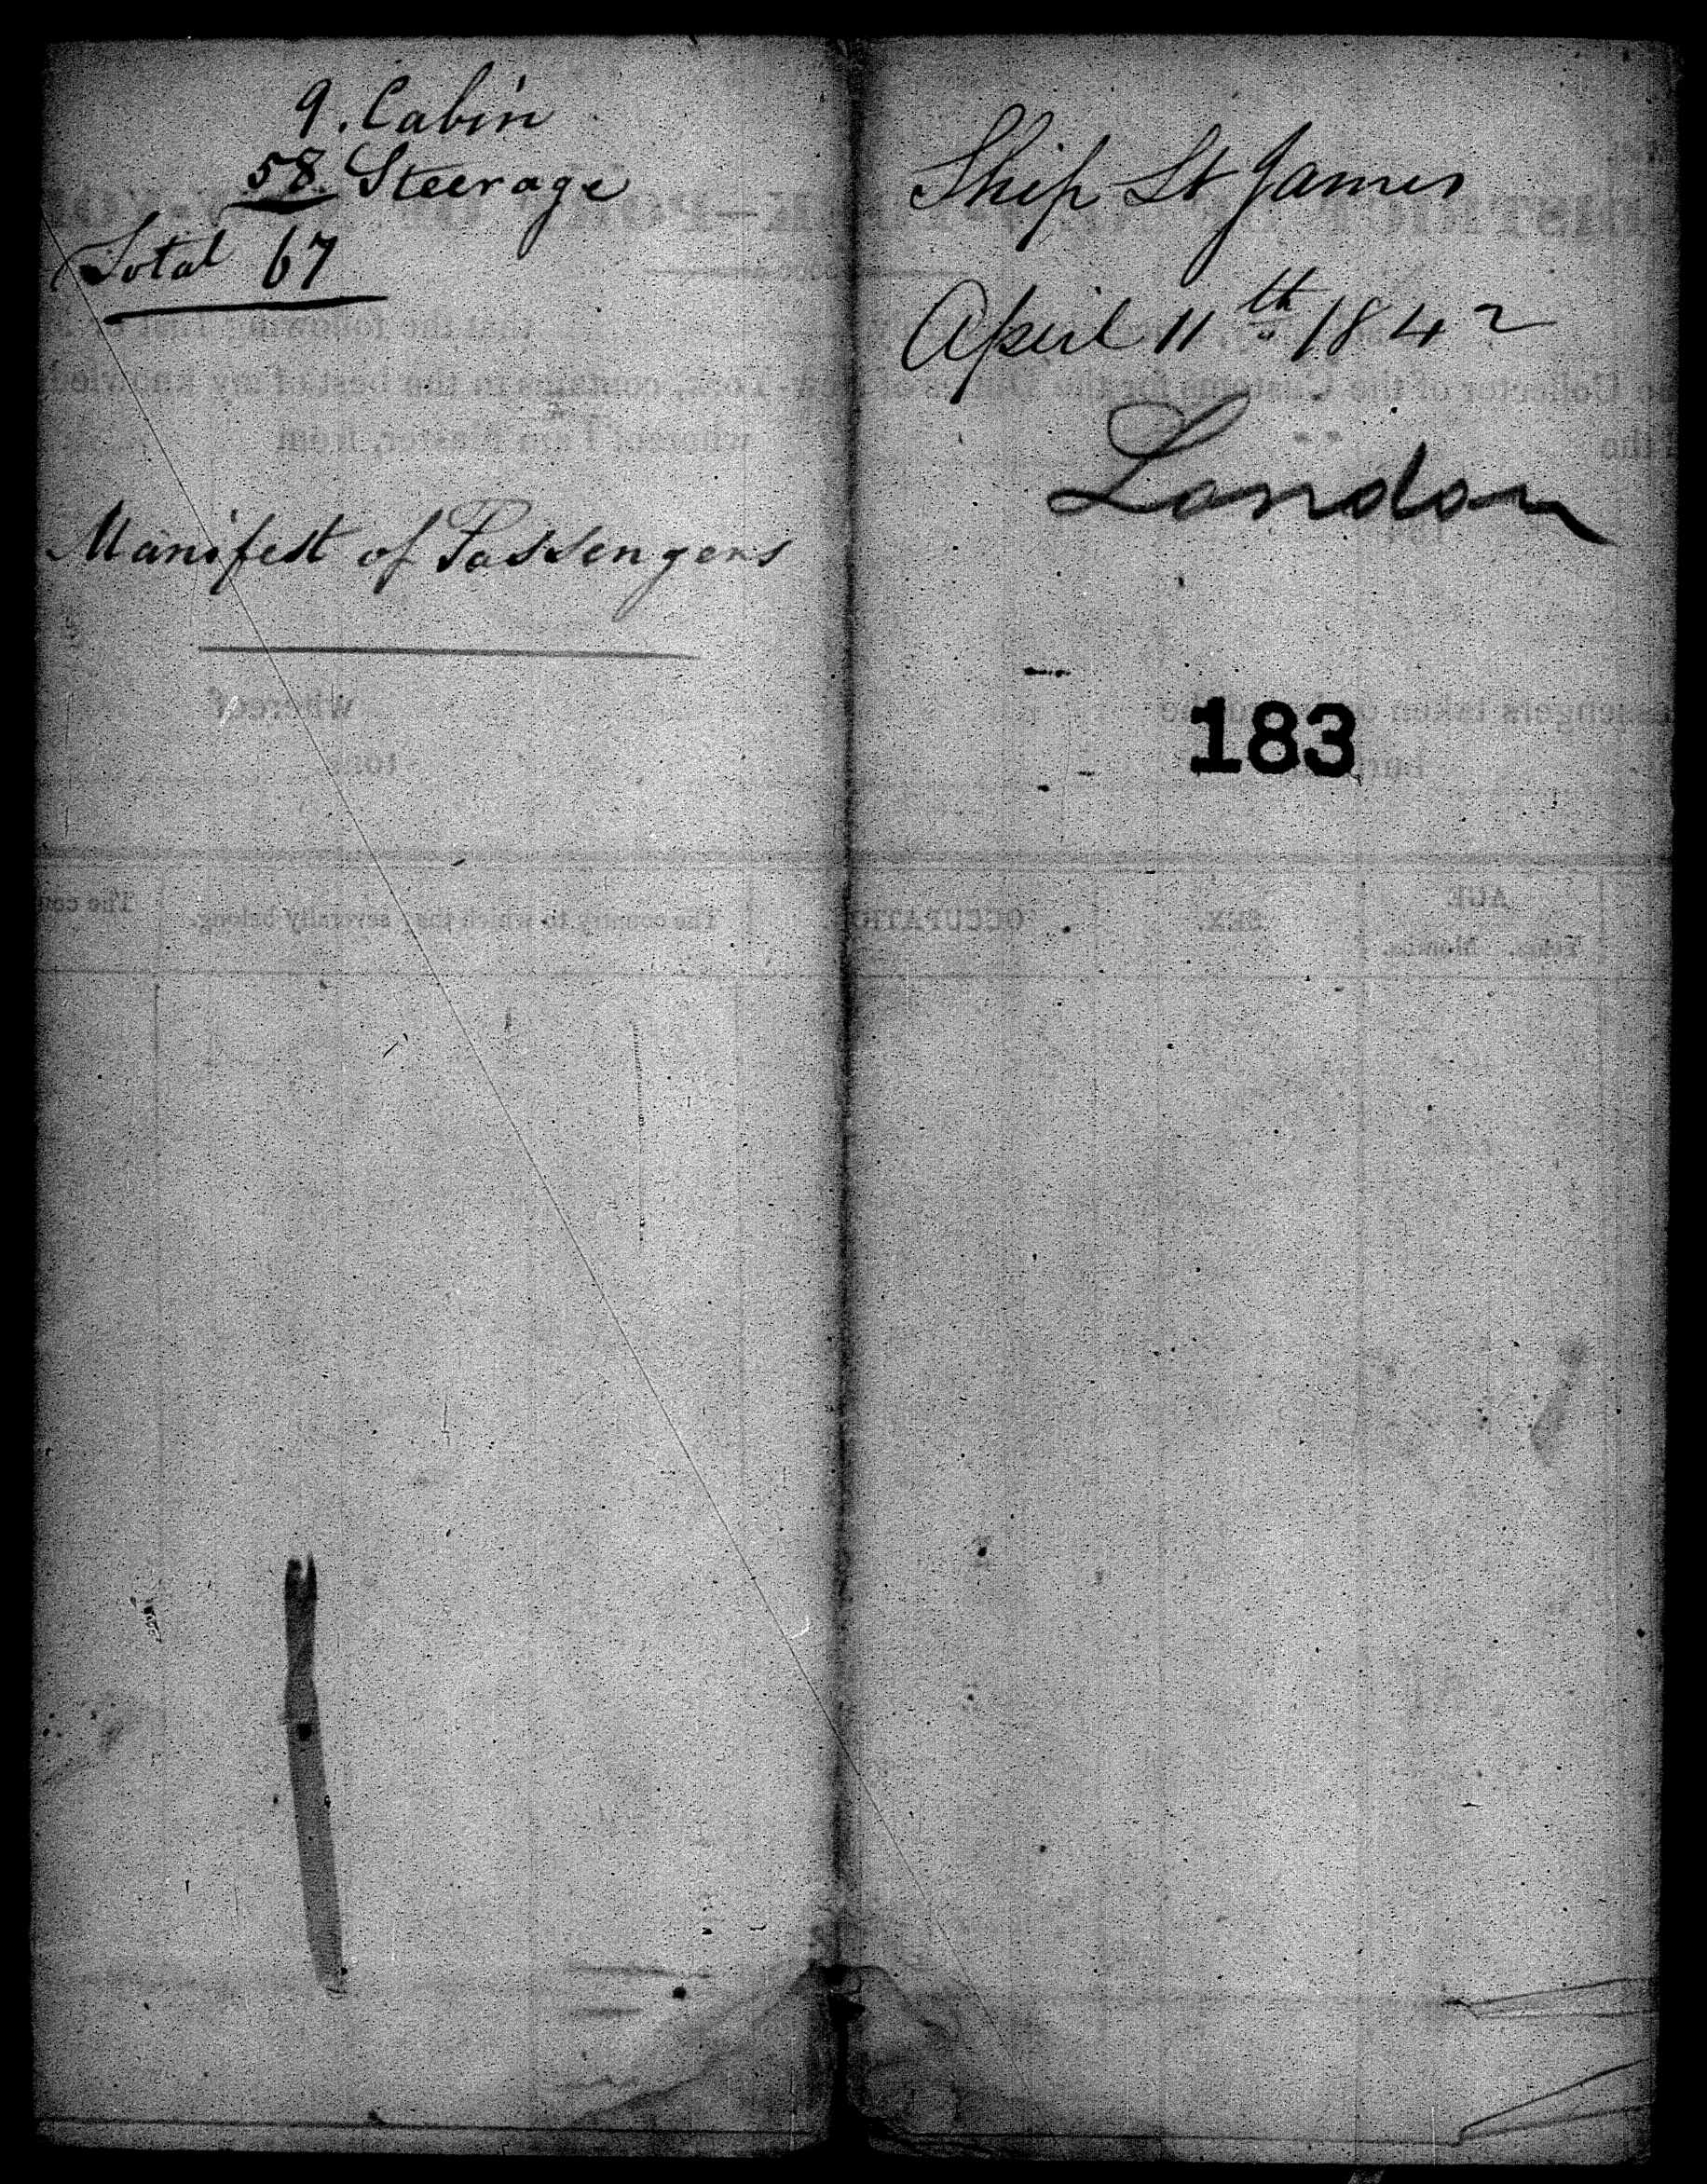 9. Cabin
58. Steerage
Total 67
Manifest of Passengers
Ship St James
April 11th 1842
London
183